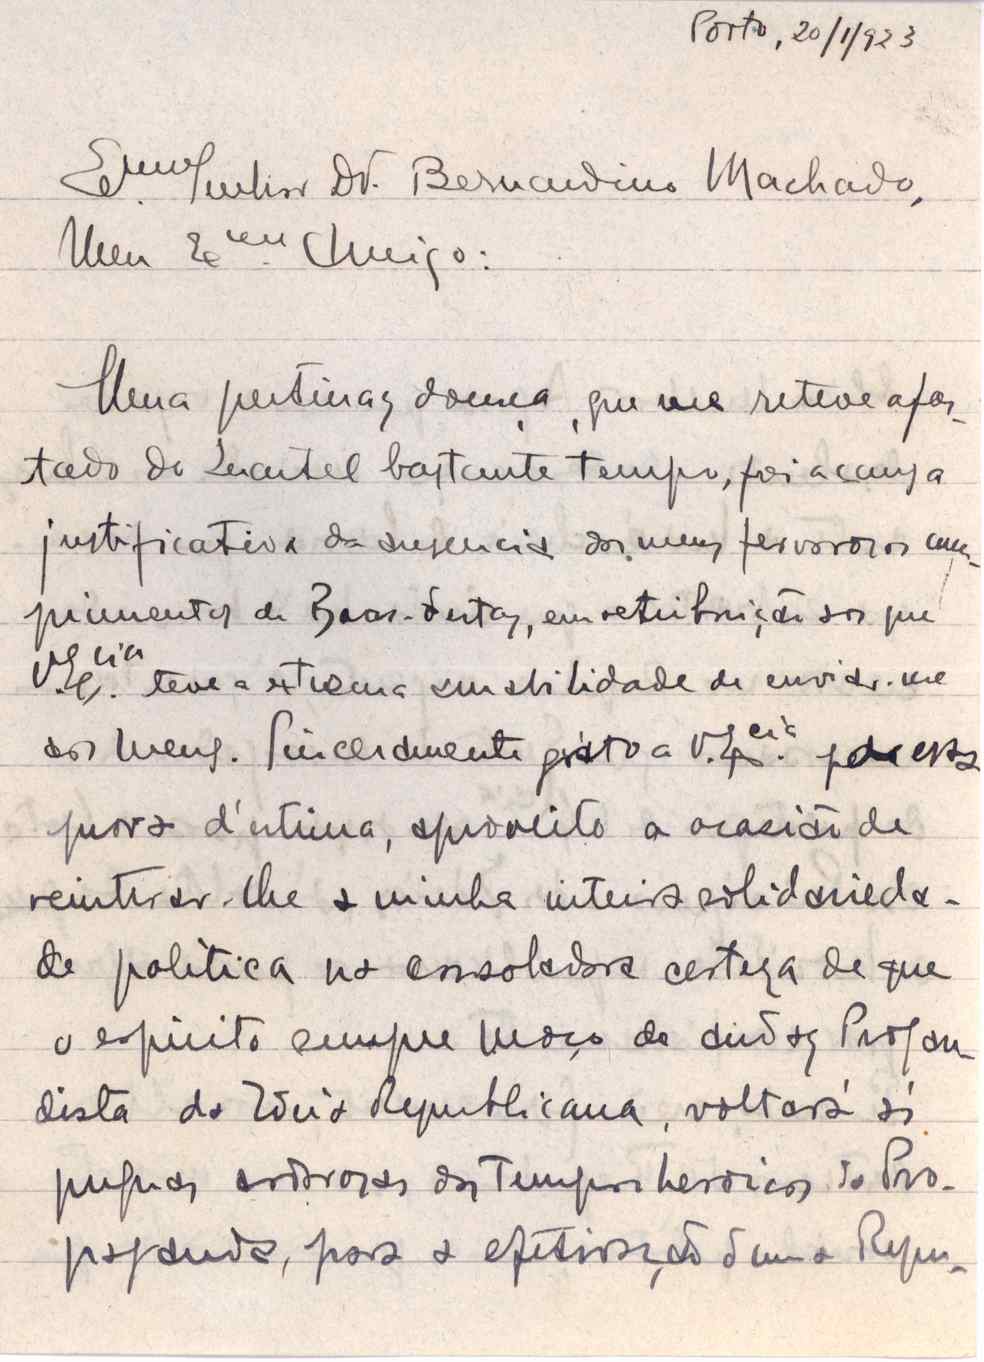 Porto, 20/1/923
Exmo Senhor Dr. Bernardino Machado,
Meu Exmo Amigo:
Uma pertinaz doença, que me reteve afas-
tado do Quartel bastante tempo, foi a causa
justificativa da ausencia dos meus fervorosos cum-
primentos de Boas-Festas, em retribuição aos que
V. Ex.cia teve a extrema amabilidade de enviar-me
aos meus. Sinceramente grato a V. Ex.cia por essa
prova d'estima, aproveito a ocasião de
reinterar-lhe a minha inteira solidarieda-
de politica na consoladora certeza de que
o espirito sempre moço do audaz Propan-
dista da Ideia Republicana, voltará ás
pugnas ardorosas dos tempos heroicos da Pro-
paganda, para a efetivação duma Repu-